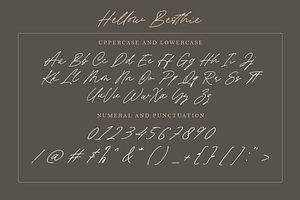 Hellow Besthie
UPPERCASE AND LOWERCASE
Aa Bb Cc Dd Ee Ff Gg Hh Ii Jj
Kk Ll Mm Nn Oo Pp Qq Rr Ss Tt
Uu Vv Ww Xx Yy Zz
NUMERAL AND PUNCTUATION
01234567890
! @ # $ % ^ & * ( ) _ + { } [ ] : " >